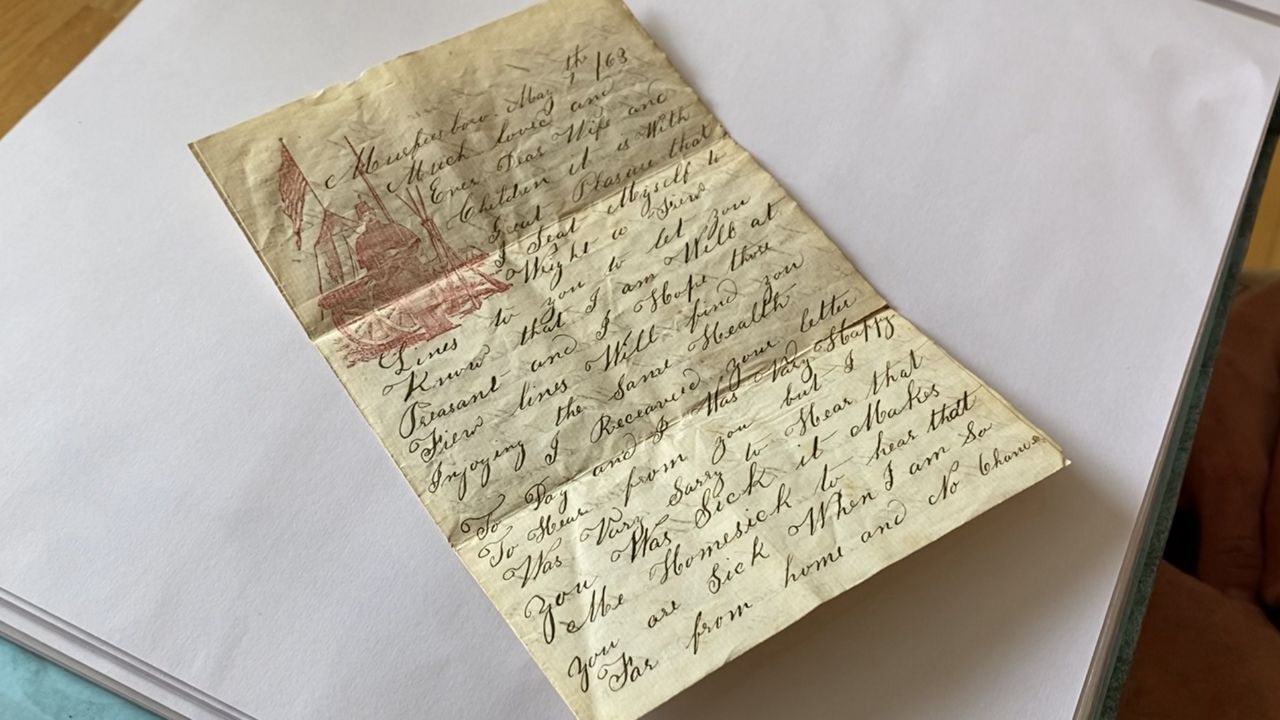 Murfeesboro. May 1th /63
Much loved and
Ever Dear Wife and
Children it is With
Great Pleasure that
I Seat Myself to
Wright a Fiew
Lines to you to let you
Know that I am Well at
Preasant and I Hope those
Fiew lines Will find you
Injoying the Same Health
I Receaved your letter
To Day and I Was Vary Happy
To Hear from you but I
Was Vary Sarry to Hear that
you Was Sick it Makes
Me Homesick to hear that
you are Sick When I am So
Far from home and No Chance